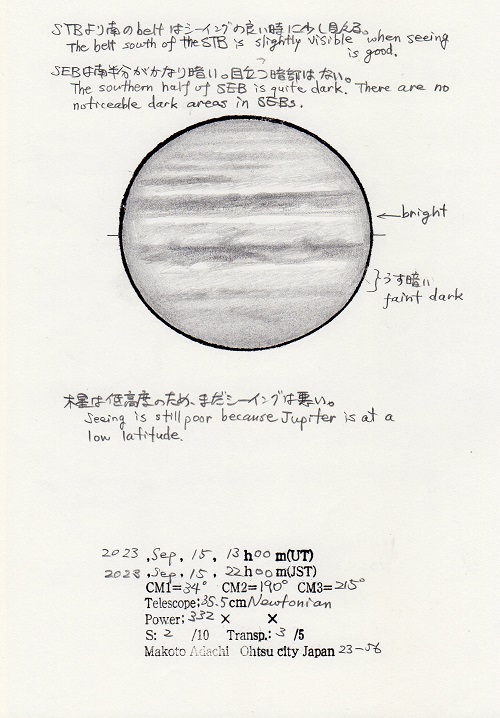 STBより南のbeltはシーイングの良い時に少し見える。
The belt south of the STB is slightly visible when seeing
is good.
SEBは南半分がかなり暗い。目立つ暗部はない。
The southern half of SEB is quite dark. There are no
noticeable dark areas in SEBs.
←bright
}うす暗い
faint dark
木星は低高度のため、まだシーイングは悪い。
Seeing is still poor because Jupiter is at a
low latitude.
2023 ,Sep, 15, 13h00m(UT)
2023 ,Sep, 15, 22h00m(JST)
CM1=34° CM2=190° CM3=215°
Telescope;35.5cm Newtonian
Power;332× ×
S: 2 /10 Transp.: 3 /5
Makoto Adachi Ohtsu city Japan 23-56